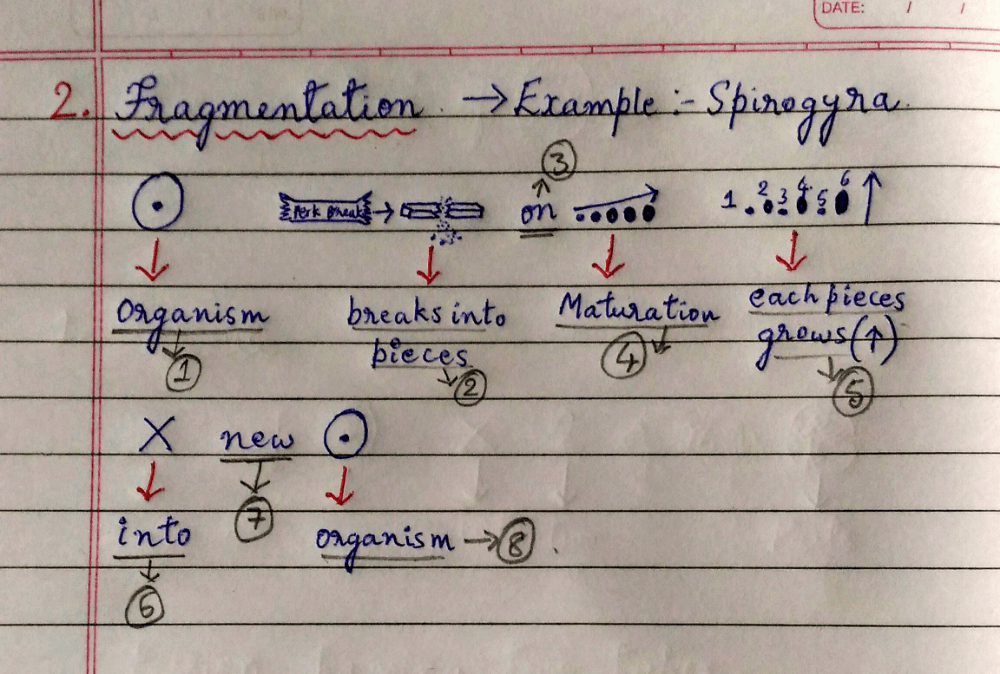 DATE: / /
2. Fragmentation. → Example :- Spirogyra.
3
Perk Break → on 1 2 3 4 5 6 ↑
Organism breaks into Maturation each pieces
pieces grows (↑)
1 2 4 5
X new
into 7 organism → 8.
6